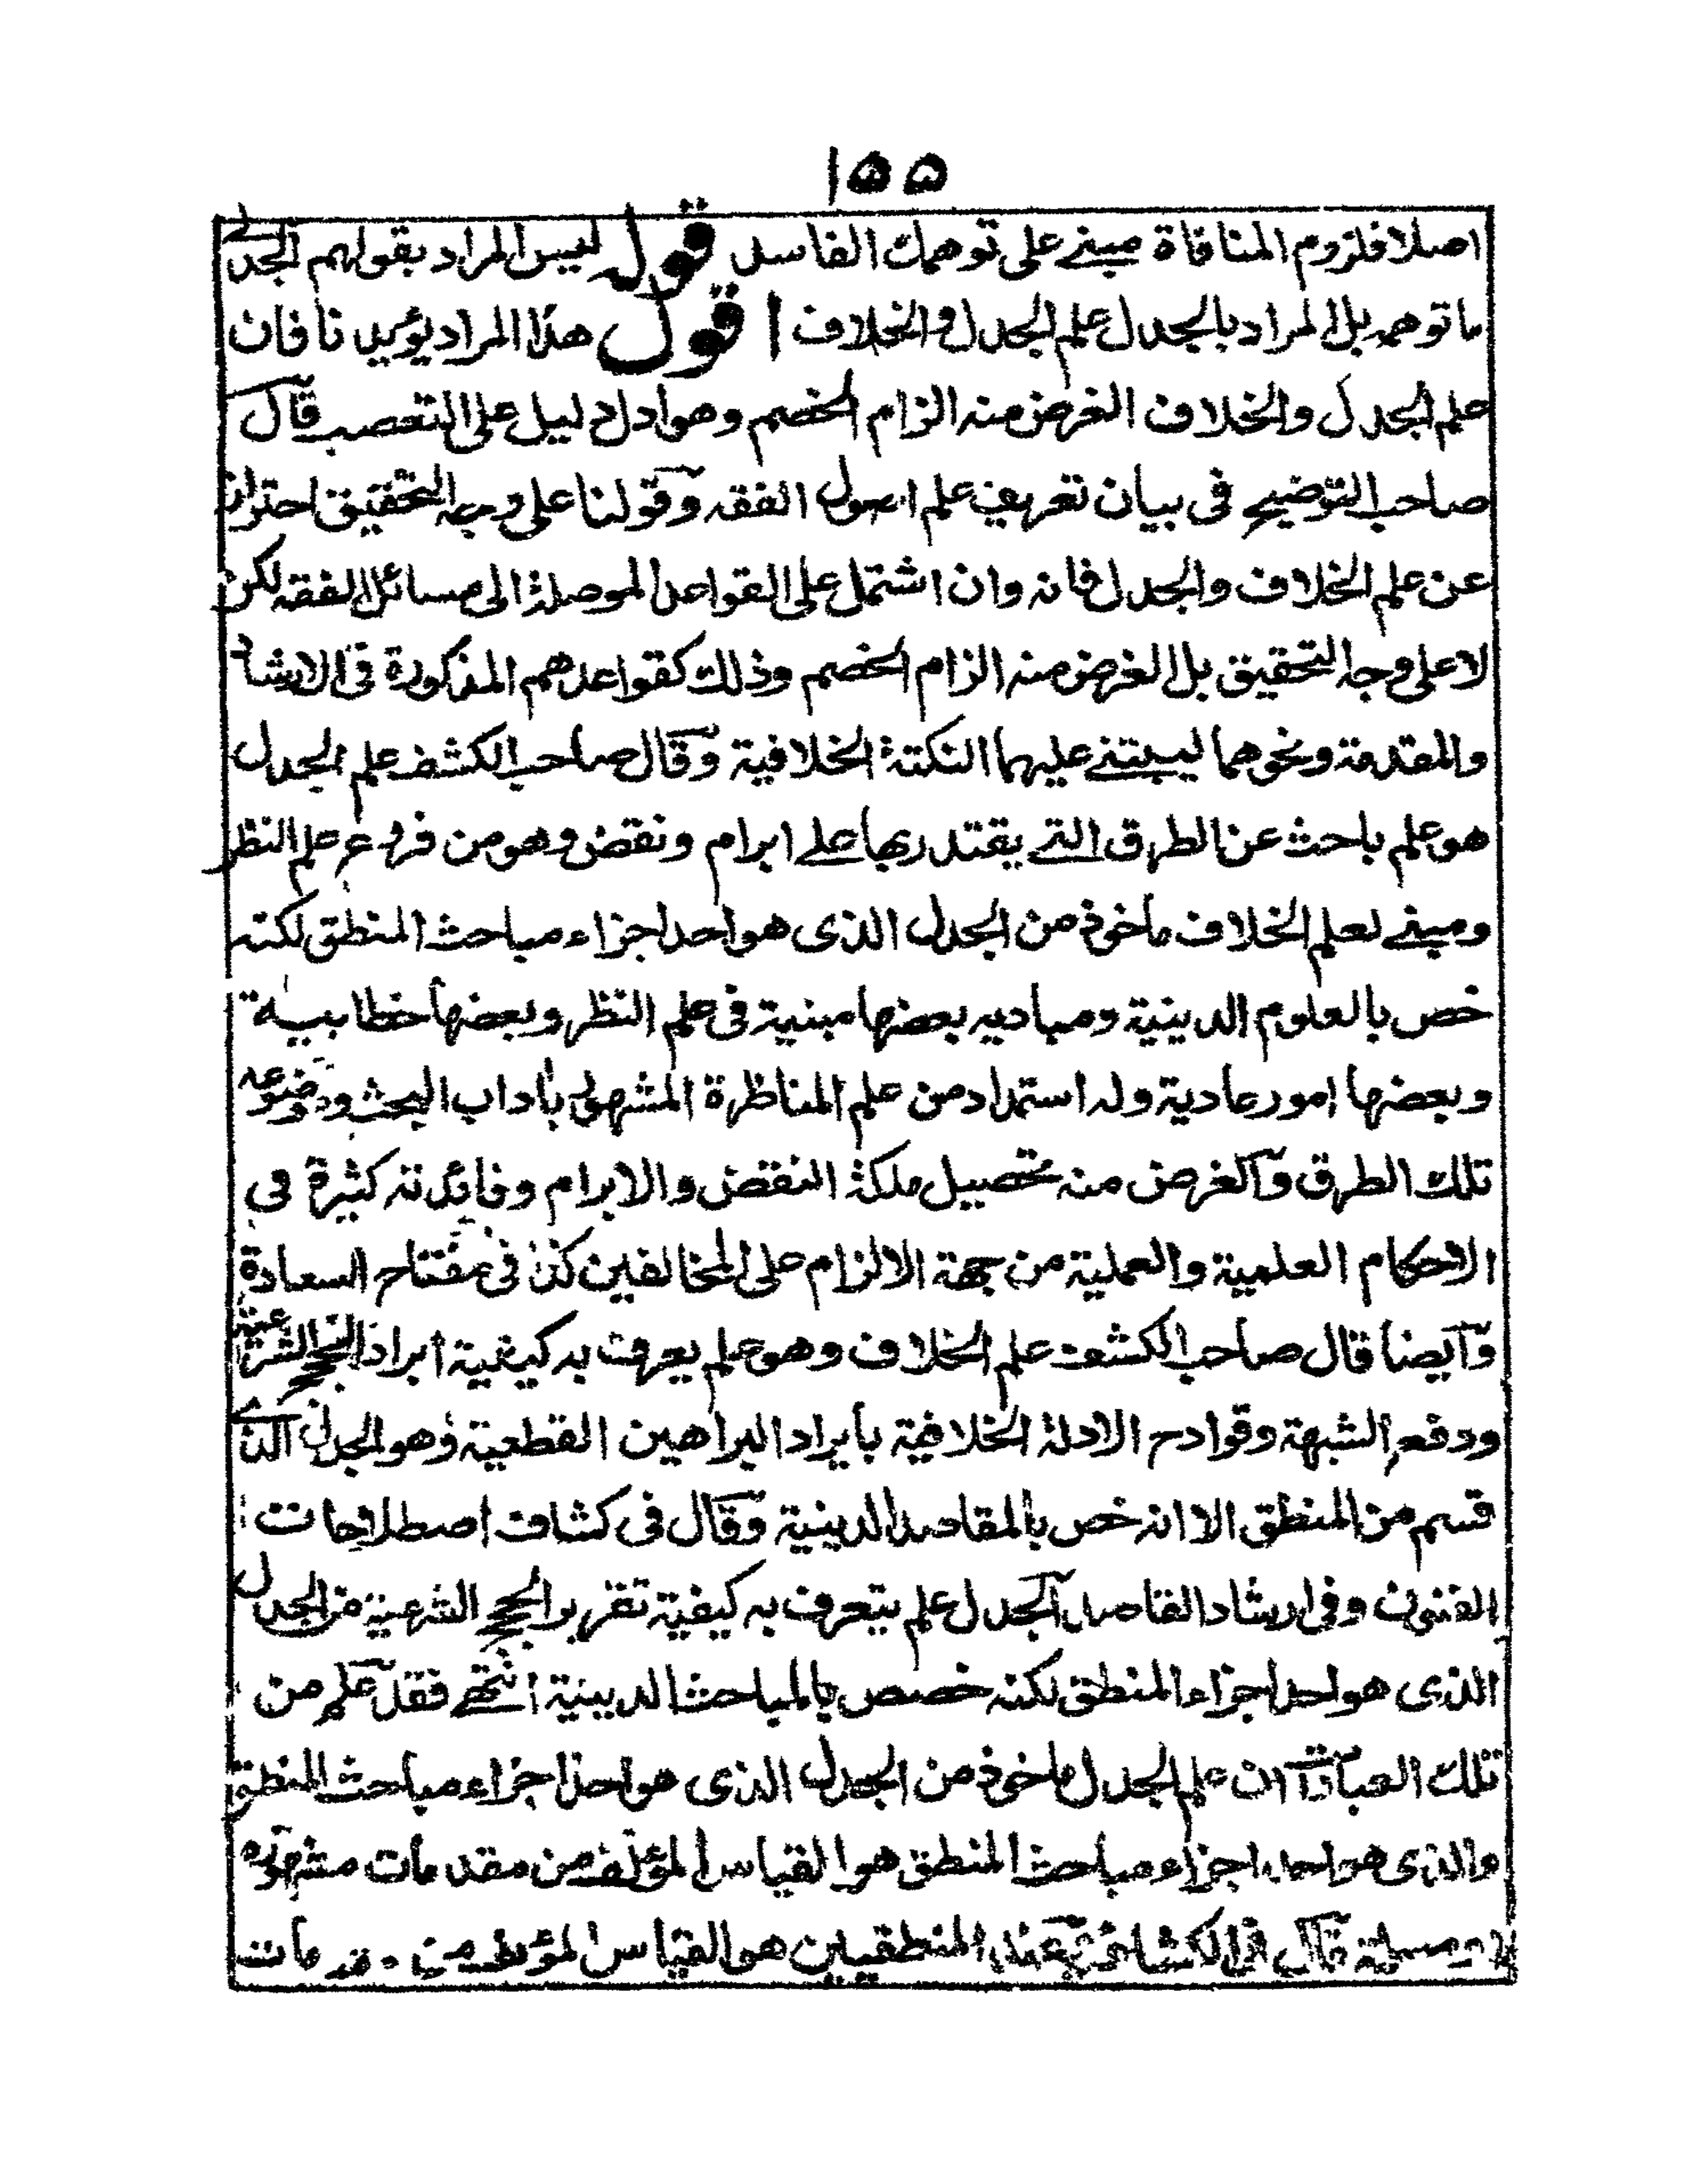 ١۵۵
اصلا فلزوم المنافاة مبنے على توهمك الفاسد قوله ليس المراد بقولهم الجدلے
ما توهمه بل المراد بالجدل علم الجدل والخلاف اقول هذا المراد يؤيدنا فان
علم الجدل والخلاف الغرض منه الزام الخصم وهو ادل دليل على التعصب قال
صاحب التوضيح فى بيان تعريف علم اصول الفقه وقولنا على وجه التحقيق احتراز
عن علم الخلاف والجدل فانه وان اشتمل على القواعد الموصلة الى مسائل الفقه لكن
لا على وجه التحقيق بل الغرض منه الزام الخصم وذلك كقواعدهم المذكورة فى الارشاد
والمقدمة ونحوهما ليبتنے عليها النكتة الخلافية وقال صاحب الكشف علم الجدل
هو علم باحث عن الطرق التے يقتدر بها علے ابرام ونقض وهو من فروع علم النظر
ومبنے لعلم الخلاف ماخوذ من الجدل الذى هو احد اجزاء مباحث المنطق لكنه
خص بالعلوم الدينية ومباديه بعضها مبنية فى علم النظر وبعضها خطابية
وبعضها امور عادية وله استمداد من علم المناظرة المشهور باداب البحث وموضوعه
تلك الطرق والغرض منه تحصيل ملكة النقض والابرام وفائدته كثيرة فى
الاحكام العلمية والعملية من جهة الالزام على المخالفين كذا فى مفتاح السعادة
وايضا قال صاحب الكشف علم الخلاف وهو علم يعرف به كيفية ايراد الحجج الشرعية
ودفع الشبهة وقوادح الادلة الخلافية بايراد البراهين القطعية وهو الجدل الذے
قسم من المنطق الا انه خص بالمقاصد الدينية وقال فى كشاف اصطلاحات
الفنون وفى ارشاد القاصد الجدل علم يتعرف به كيفية تقرير الحجج الشرعية من الجدل
الذى هو احد اجزاء المنطق لكنه خصص بالمباحث الدينية انتهے فقد علم من
تلك العبارات ان علم الجدل ماخوذ من الجدل الذى هو احد اجزاء مباحث المنطق
والذى هو احد اجزاء مباحث المنطق هو القياس المؤلف من مقدمات مشهورة
مسلمة قال فى الكشاف عند المنطقيين هو القياس المؤلف من مقدمات